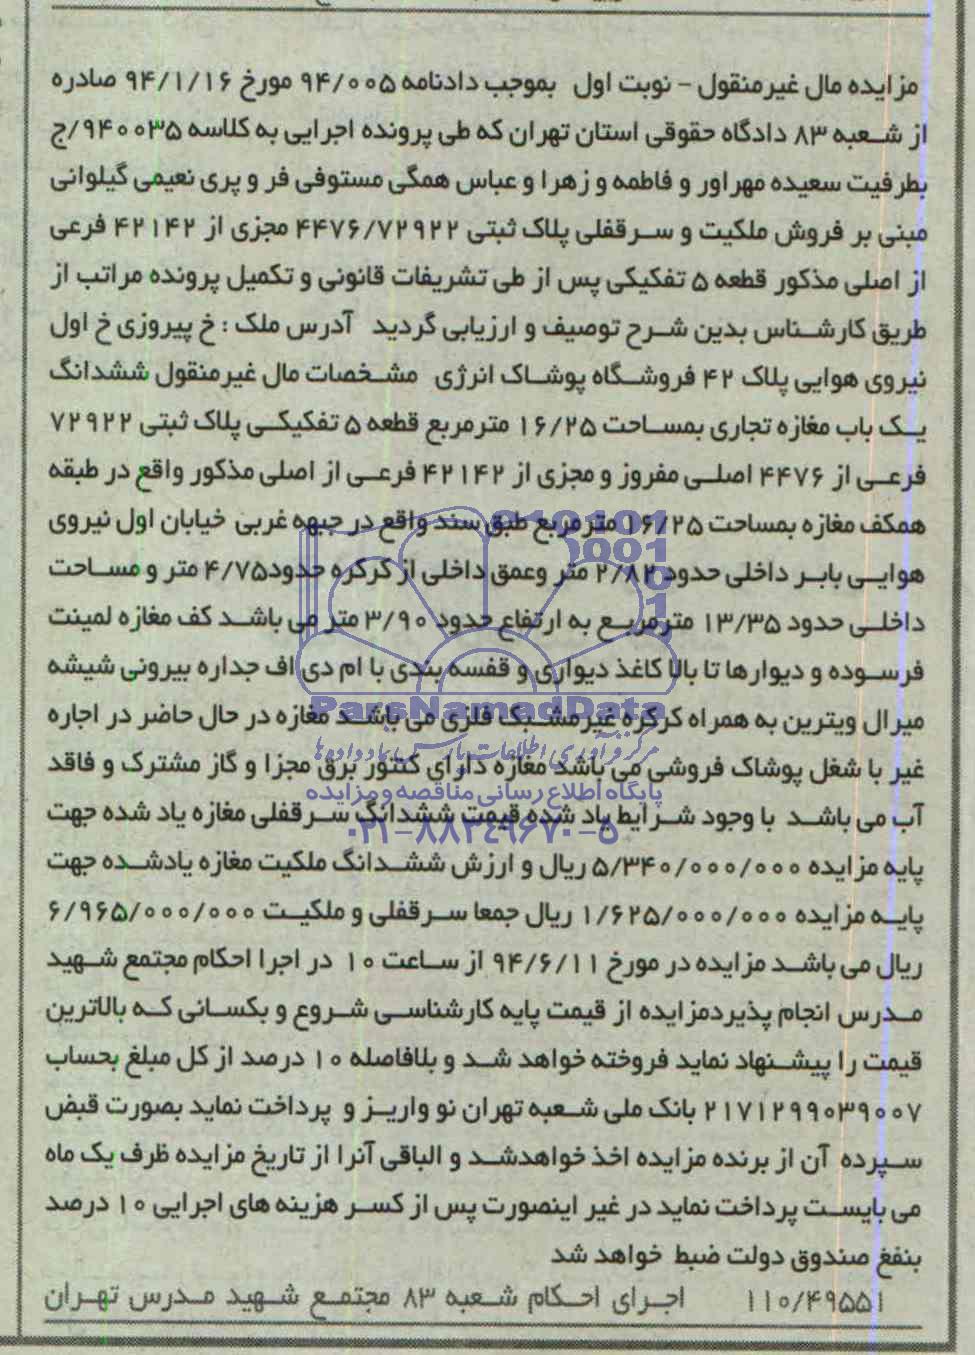 مزایده مال غیرمنقول - نوبت اول بموجب دادنامه ۹۴/۰۰۵ مورخ ۹۴/۱/۱۶ صادره
از شعبه ۸۳ دادگاه حقوقی استان تهران که طی پرونده اجرایی به کلاسه ۹۴۰۰۳۵/ج
بطرفیت سعیده مهراور و فاطمه و زهرا و عباس همگی مستوفی فر و پری نعیمی گیلوانی
مبنی بر فروش ملکیت و سرقفلی پلاک ثبتی ۴۴۷۶/۷۲۹۲۲ مجزی از ۴۲۱۴۲ فرعی
از اصلی مذکور قطعه ۵ تفکیکی پس از طی تشریفات قانونی و تکمیل پرونده مراتب از
طریق کارشناس بدین شرح توصیف و ارزیابی گردید آدرس ملک : خ پیروزی خ اول
نیروی هوایی پلاک ۴۲ فروشگاه پوشاک انرژی مشخصات مال غیرمنقول ششدانگ
یک باب مغازه تجاری بمساحت ۱۶/۲۵ مترمربع قطعه ۵ تفکیکی پلاک ثبتی ۷۲۹۲۲
فرعی از ۴۴۷۶ اصلی مفروز و مجزی از ۴۲۱۴۲ فرعی از اصلی مذکور واقع در طبقه
همکف مغازه بمساحت ۱۶/۲۵ مترمربع طبق سند واقع در جبهه غربی خیابان اول نیروی
هوایی بابر داخلی حدود ۲/۸۲ متر وعمق داخلی از کرکره حدود۴/۷۵ متر و مساحت
داخلی حدود ۱۳/۳۵ مترمربع به ارتفاع حدود ۳/۹۰ متر می باشد کف مغازه لمینت
فرسوده و دیوارها تا بالا کاغذ دیواری و قفسه بندی با ام دی اف جداره بیرونی شیشه
میرال ویترین به همراه کرکره غیرمشبک فلزی می باشد مغازه در حال حاضر در اجاره
غیر با شغل پوشاک فروشی می باشد مغازه دارای کنتور برق مجزا و گاز مشترک و فاقد
آب می باشد با وجود شرایط یاد شده قیمت ششدانگ سرقفلی مغازه یاد شده جهت
پایه مزایده ۵/۳۴۰/۰۰۰/۰۰۰ ریال و ارزش ششدانگ ملکیت مغازه یادشده جهت
پایه مزایده ۱/۶۲۵/۰۰۰/۰۰۰ ریال جمعا سرقفلی و ملکیت ۶/۹۶۵/۰۰۰/۰۰۰
ریال می باشد مزایده در مورخ ۹۴/۶/۱۱ از ساعت ۱۰ در اجرا احکام مجتمع شهید
مدرس انجام پذیردمزایده از قیمت پایه کارشناسی شروع و بکسانی که بالاترین
قیمت را پیشنهاد نماید فروخته خواهد شد و بلافاصله ۱۰ درصد از کل مبلغ بحساب
۲۱۷۱۲۹۹۰۳۹۰۰۷ بانک ملی شعبه تهران نو واریز و پرداخت نماید بصورت قبض
سپرده آن از برنده مزایده اخذ خواهدشد و الباقی آنرا از تاریخ مزایده ظرف یک ماه
می بایست پرداخت نماید در غیر اینصورت پس از کسر هزینه های اجرایی ۱۰ درصد
بنفع صندوق دولت ضبط خواهد شد
۱۱۰/۴۹۵۵۱ اجرای احکام شعبه ۸۳ مجتمع شهید مدرس تهران
ParsNamadData
مرکز فرآوری اطلاعات پارس نماد داده ها
پایگاه اطلاع رسانی مناقصه و مزایده
۰۲۱-۸۸۳۴۹۶۷۰-۵